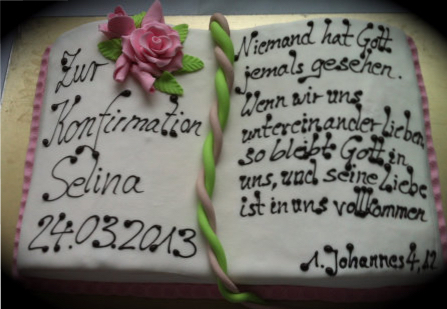 Zur
Konfirmation
Selina
24.03.2013
Niemand hat Gott
jemals gesehen.
Wenn wir uns
untereinander lieben
so bleibt Gott in
uns, und seine Liebe
ist in uns vollkommen
1. Johannes 4, 12